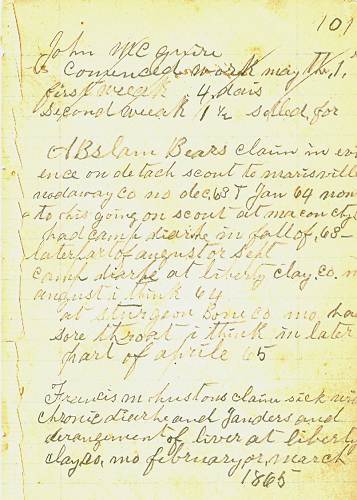 101
John McGuire
Comenced work may the, 1,
first weeak 4, dais
Second weeak 1 1/2 solled, for
ABslam Bears claim in evi
ence on detach scout to marisville
nodaway co mo dec, 63 T Jan 64 non
to this going on scout at macon cty
had camp diarhe in fall of, 63-
later ar of august or Sept
camp diarhe at liberty clay, co, m
august i think 64
at sturgeon Bone co mo. ha
sore throat i think in later
part of aprile 65
Francis m ohnstons claim sick wi
chronic diarhe and Janders and
derangement of liver at liberty
clay, co, mo february, or, march
1865